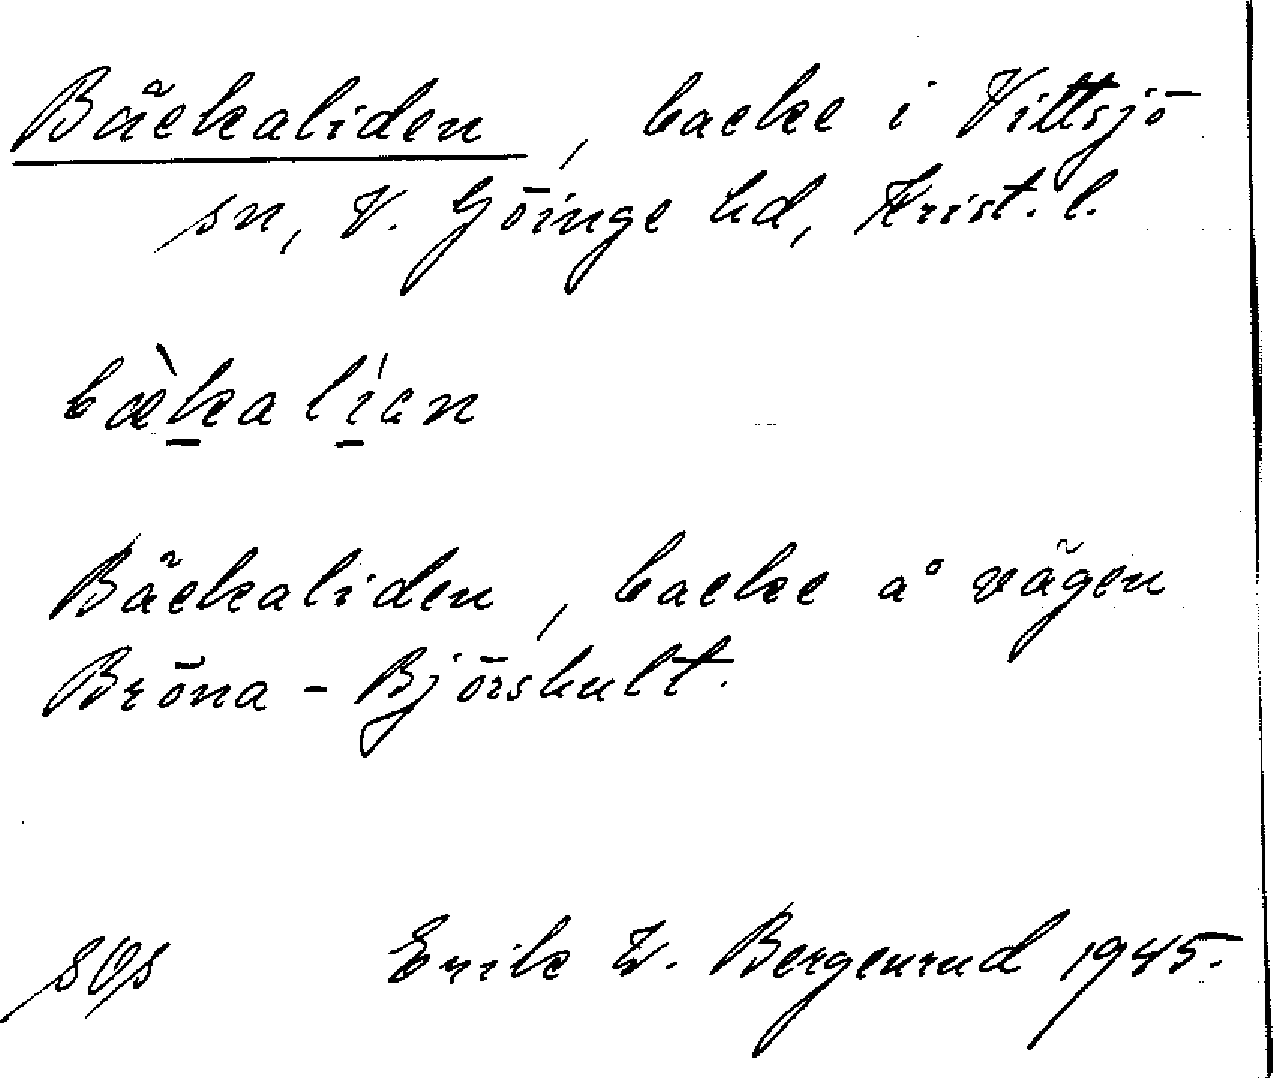 Bäckaliden, backe i Vittsjö
sn, V. Göinge hd, Krist. l.
bæ̀ka lían
Bäckaliden, backe å vägen
Bröna - Björshult.
Erik W. Bergenrud 1945.